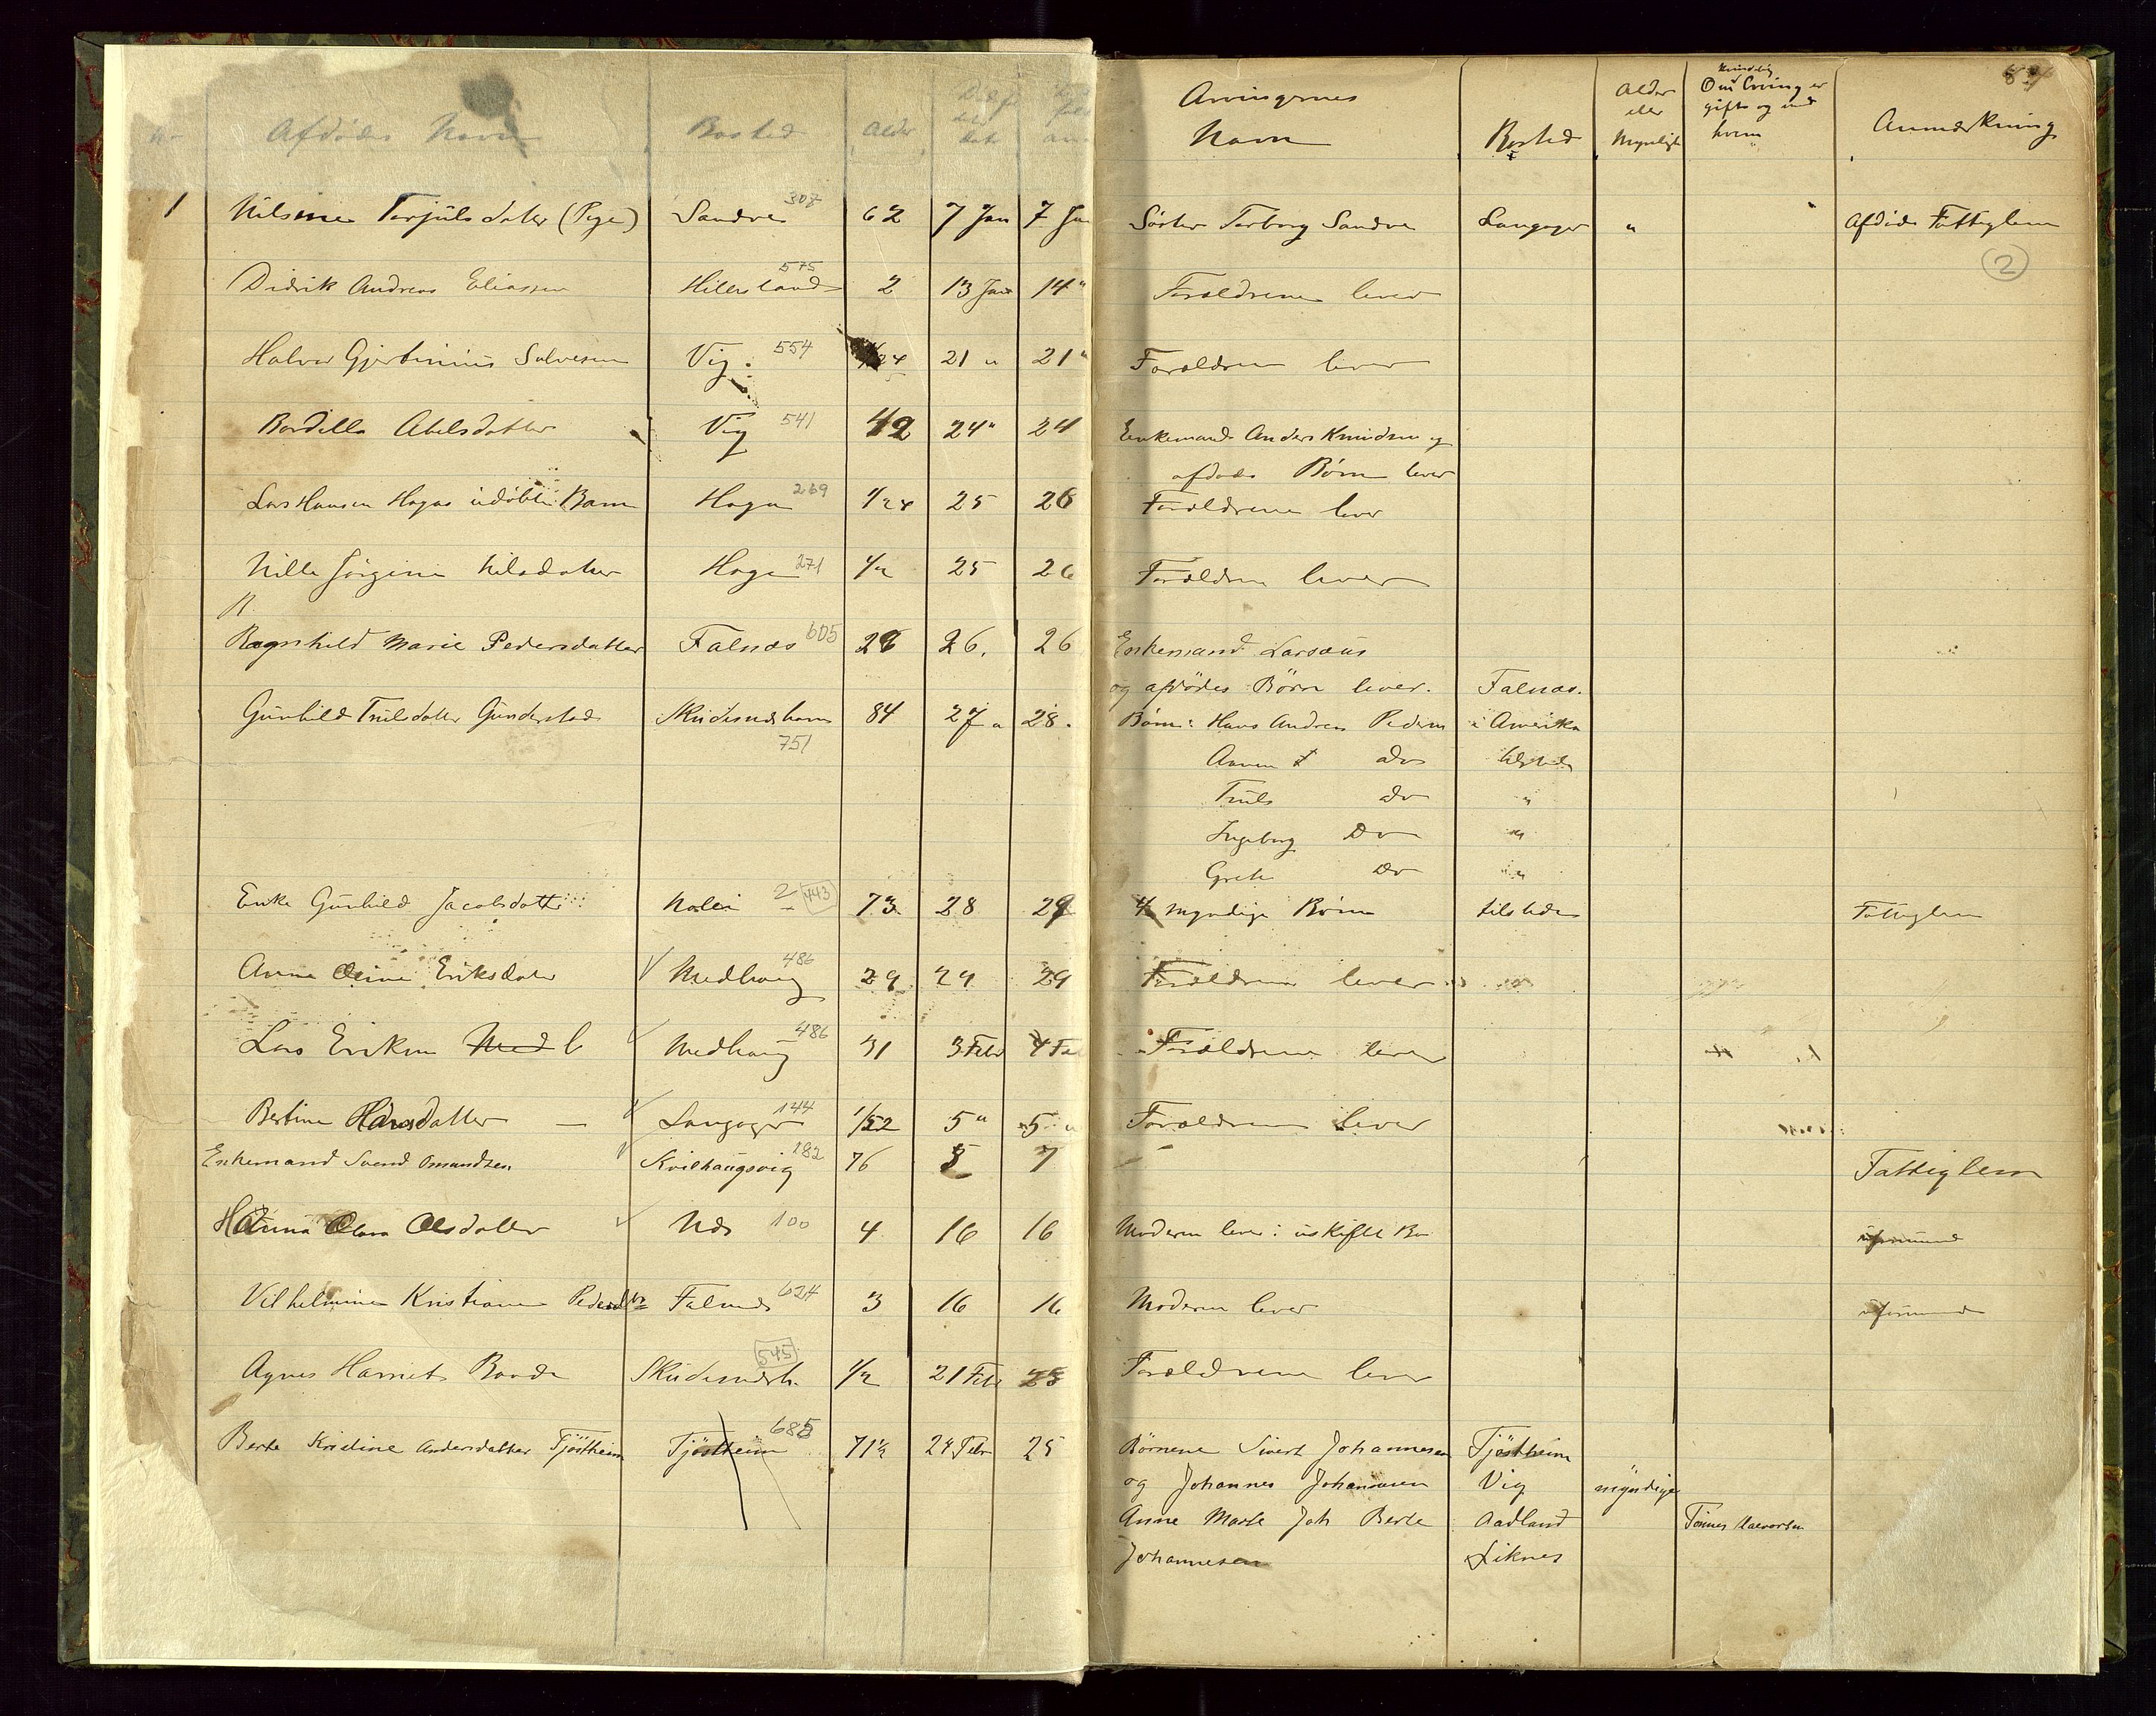 Afdødes Navn Bosted Alder
Arvingernes Navn Bosted Alder eller Myndigh Om kvindelig Arving er gift og med hvem Anmærkning
1 Nilsine Torjulsdatter (Pige) Sandve 308 62 7 Jan 7 Jan Søster Torborg Sandve Langager " Afdøde Fattiglem
2
Didrik Andreas Eliassen Hillesland 575 2 13 Jan 14 " Forældrene lever
Halvor Gjertinius Salvesen Vig 554 1/24 21 " 21 " Forældrene lever
Bordille Abelsdatter Vig 541 42 24 " 24 Enkemand Anders Knudsen og
afdødes Børn lever
Lars Hansen Hagas udøbte Barn Haga 269 1/24 25 26 Forældrene lever
Nille Jørgine Nilsdatter Haga 271 1/2 25 26 Forældrene lever
R
Ragnhild Marie Pedersdatter Falnæs 605 28 26. 26 Enkemand Larsæus
og afdødes Børn lever. Falnæs.
Gunhild Trulsdatter Gunderstad Skudesneshavn 84 27 " 28. Børn: Hans Andreas Pedersen i Amerika
751
Anna do tilstede
Truls do "
Ingeborg Do "
Grete Do "
Enke Gunhild Jacobsdatter 2 443 73 28 29 4 myndige Børn tilstede Fattiglem
Anna Oline Eriksdatter V Medhaug 486 29 29 29 Forældrene lever
Lars Eriksen Medhaug 486 31 3 Febr 4 Feb Forældrene lever
Bertine Hansdatter — Langager 144 1/52 5 " 5 " Forældrene lever
Enkemand Svend Omundsen V Kvilhaugsvig 182 76 5 7 Fattiglem
Hanna Olava Olsdatter Næs 100 4 16 16 Moderen lever i uskiftet Bo
Vilhelmine Kristiane Pedersdtr Falnæs 624 3 16 16 Moderen lever
Agnes Harriet Skudesnesh. 545 1/2 21 Feb 23 Forældrene lever
Berte Kristine Andersdatter Tjøstheim Tjøstheim 685 71½ 24 Febr 25 Børnene Sivert Johannesen Tjøstheim
og Johannes Johannesen Vig myndige
Anne Marte Joh Berte Aadland Tønnes Halvorsen
Johannesen Liknes